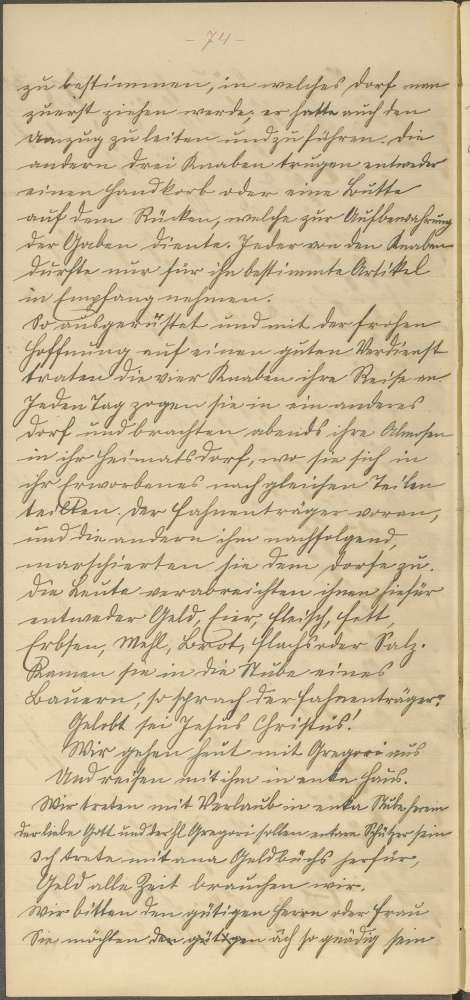 - 74 -
zu bestimmen, in welches Dorf man
zuerst ziehen werde; er hatte auch den
Umzug zu leiten und zu führen. Die
andern drei Knaben trugen entweder
einen Handkorb oder eine Butte
auf dem Rücken, welche zur Aufbewahrung
der Gaben diente. Jeder von den Knaben
durfte nur für ihn bestimmte Artikel
in Empfang nehmen.
So ausgerüstet und mit der frohen
Hoffnung auf einen guten Verdienst
traten die vier Knaben ihre Reise an.
Jeden Tag zogen sie in ein anderes
Dorf und brachten abends ihre Almosen
in ihr Heimatsdorf, wo sie sich in
ihr Erworbenes nach gleichen Teilen
teilten. Der Fahnenträger voran,
und die andern ihm nachfolgend,
marschierten sie dem Dorfe zu.
Die Leute verabreichten ihnen hiefür
entweder Geld, Eier, Fleisch, Fett,
Erbsen, Mehl, Brot, Flachs oder Salz.
Kamen sie in die Stube eines
Bauern, so sprach der Fahnenträger:
Gelobt sei Jesus Christus!
Wir gehen heut mit Gregori aus
Und reisen mit ihm in enka Haus.
Wir treten mit Verlaub in enka Stube herein
der liebe Gott und der hl. Gregori sollen enkare Schützer sein
Ich trete mit ana Geldbüchs herfür,
Geld alle Zeit brauchen wir.
Wir bitten den gütigen Herrn oder Frau
Sie möchten den gütigen äch so gnädig sein